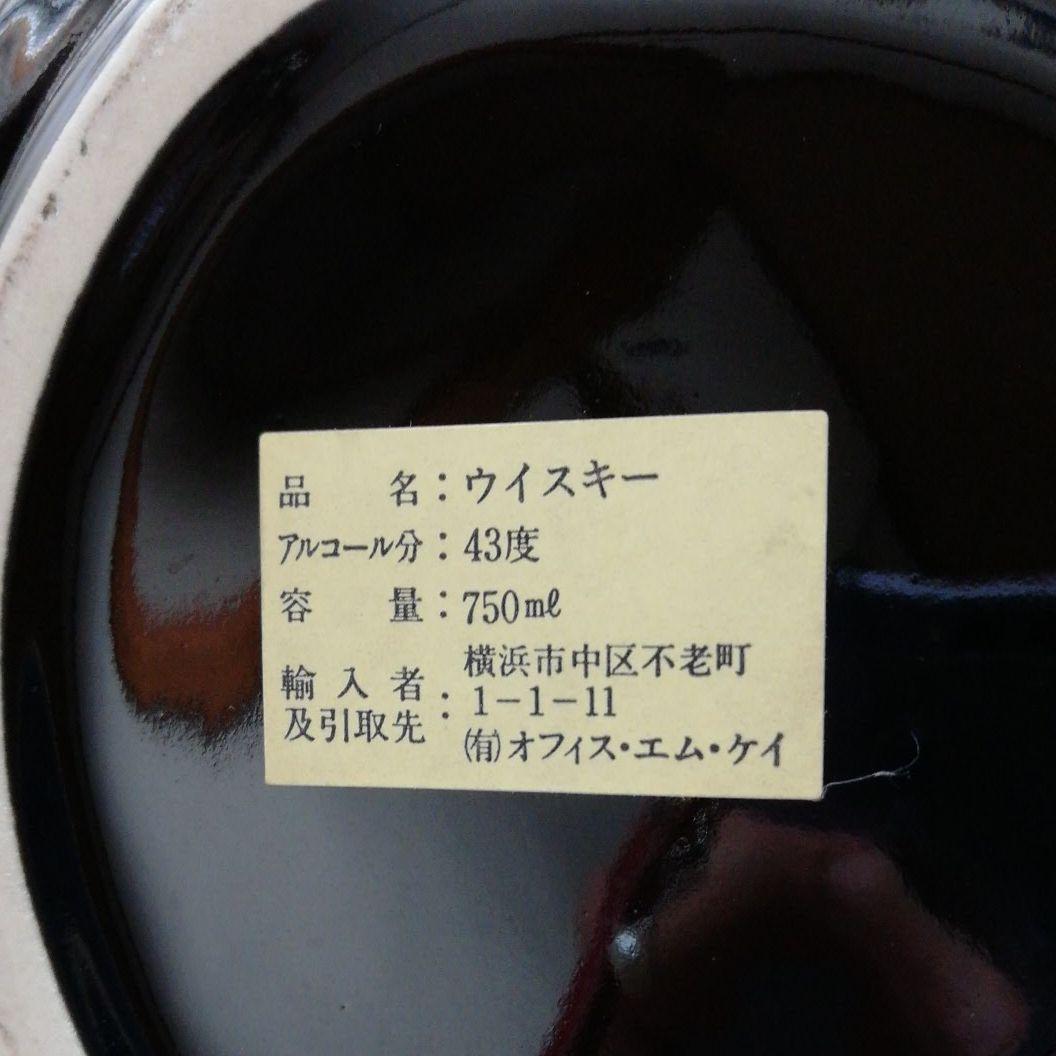 品　　名：ウイスキー
アルコール分：43度
容　　量：750㎖
輸入者及引取先：横浜市中区不老町
1-1-11
㈲オフィス・エム・ケイ